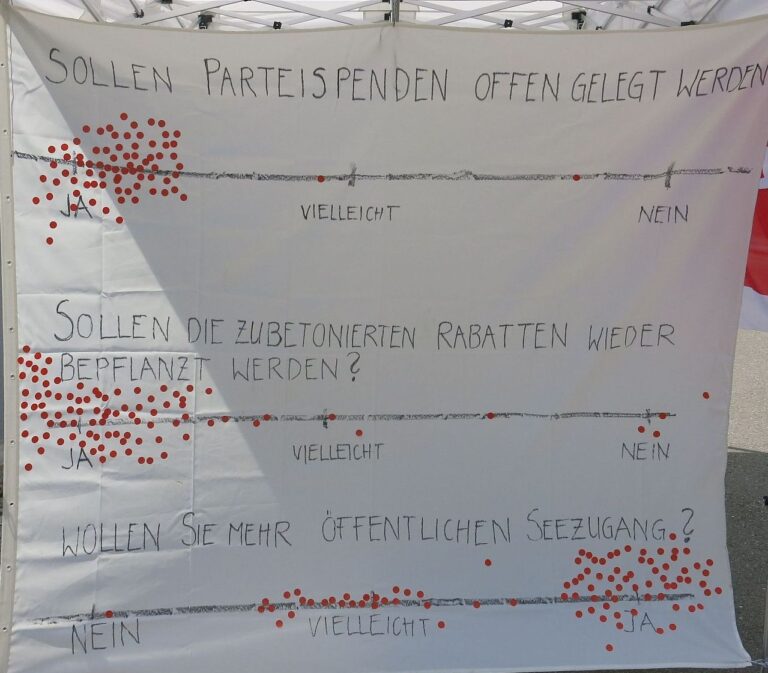 SOLLEN PARTEISPENDEN OFFEN GELEGT WERDEN
JA VIELLEICHT NEIN
SOLLEN DIE ZUBETONIERTEN RABATTEN WIEDER
BEPFLANZT WERDEN?
JA VIELLEICHT NEIN
WOLLEN SIE MEHR ÖFFENTLICHEN SEEZUGANG?
NEIN VIELLEICHT JA